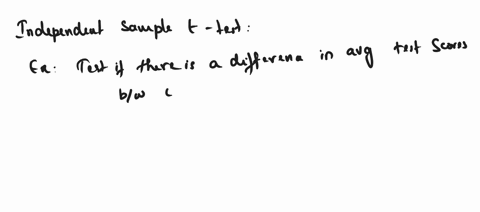 Independent Sample t-test:
Ex: Test if there is a differena in avg test Scores
b/w c